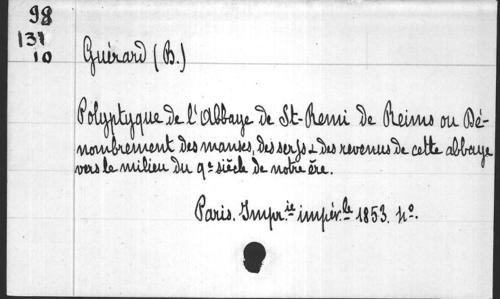 98
131
10
Guérard (B.)
Polyptyque de l'Abbaye de St-Remi de Reims ou Dé-
nombrement des manses, des serfs & des revenus de cette abbaye
vers le milieu du 9e siècle de notre ère.
Paris. Impr.ie impér.le 1853. 4o.